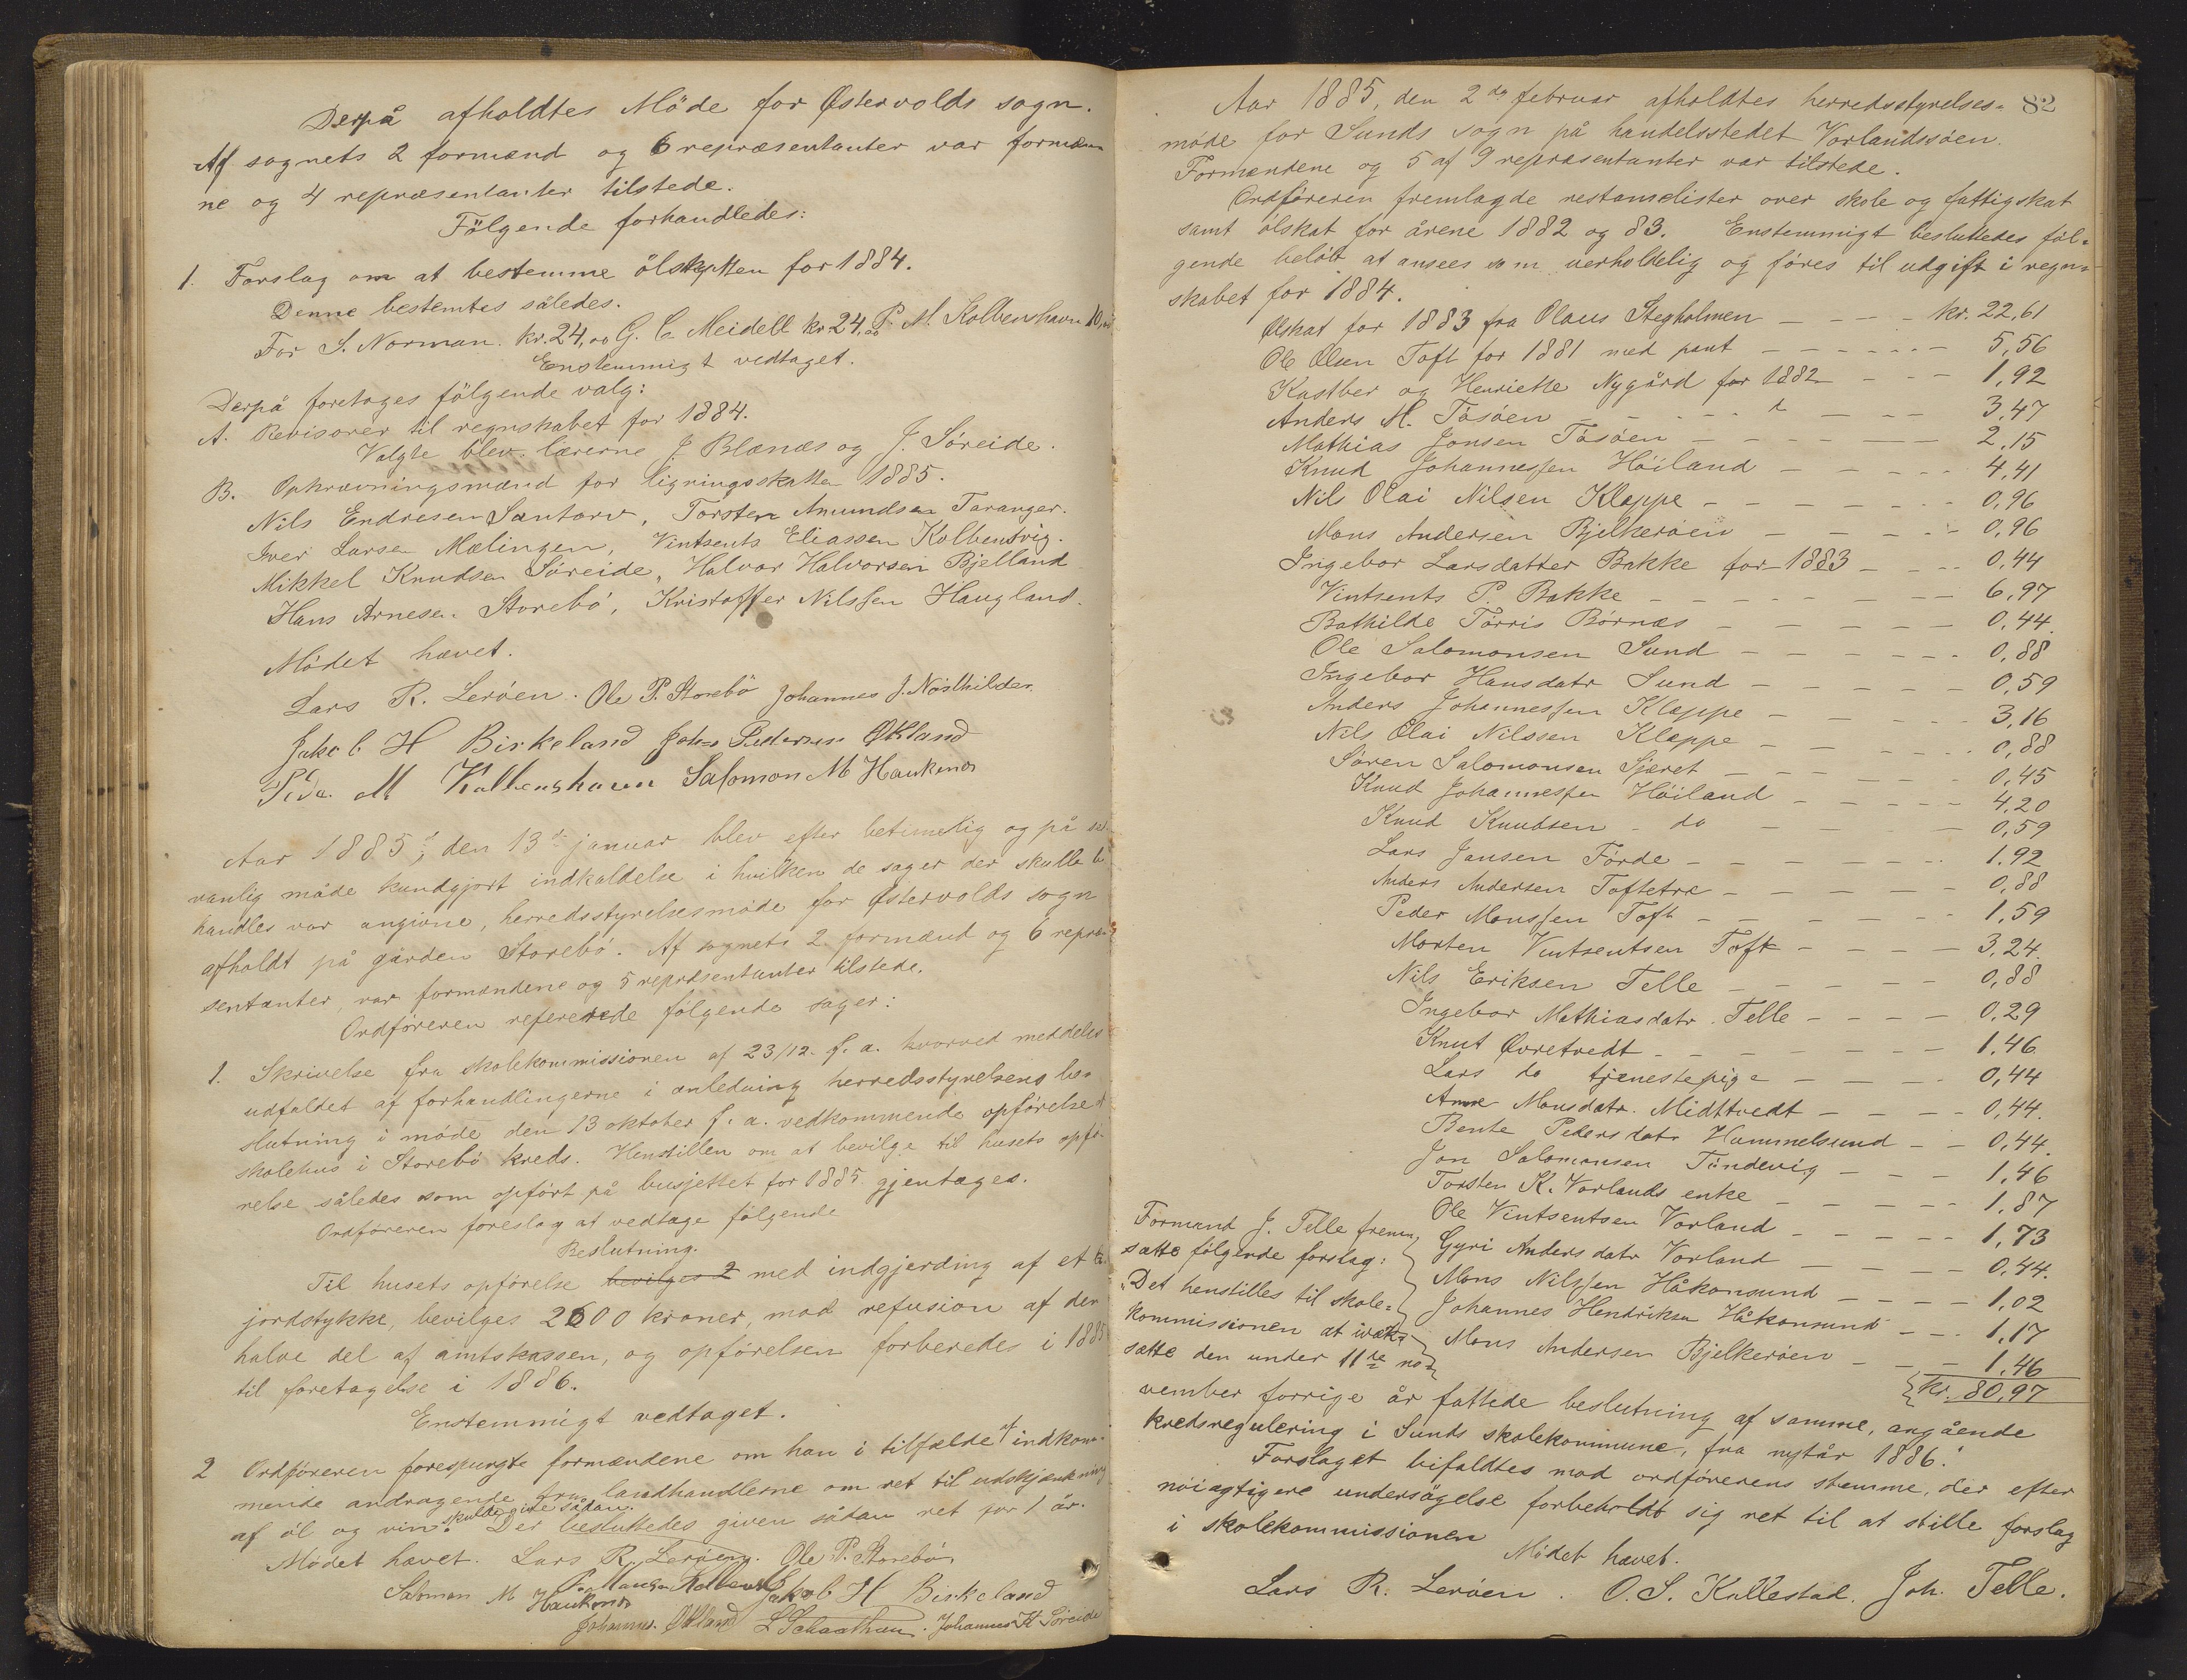 Derpå afholdtes Möde for Østervolds sogn.
Af sognets 2 formænd og 6 repræsentanter var formæn
ne og 4 repræsentanter tilstede.
Fölgende forhandledes:
1. Forslag om at bestemme ölskatten for 1884.
Denne bestemtes således.
For S. Norman. kr. 24,00 G. C. Meidell kr 24,00 P. M. Kolbenshavn 10,00
Enstemmigt vedtaget.
Derpå foretages fölgende valg:
A. Revisorer til regnskabet for 1884.
Valgte blev lærerne J Blænæs og J. Söreide.
B. Opkrævningsmænd for ligningsskatten 1885.
Nils Endresen Santorv, Torsten Amundsen Taranger.
Iver Larsen Mælingen, Vintsents Eliassen Kolbensvig.
Mikkel Knudsen Söreide, Halvor Halvorsen Bjelland
Hans Arnesen Storebö, Kristoffer Nilssen Haugland.
Mödet hævet.
Lars R. Leröen. Ole P. Storebö Johannes J. Nöstkilden
Jakob H Birkeland Johs Pedersen Økland
Peder M Kolbenshavn Salomon M Haukenæs
Aar 1885, den 13de januar blev efter betimelig og på sæd
vanlig måde kundgjort indkaldelse i hvilken de sager der skulle be
handles var angivne, herredsstyrelsesmöde for Østervolds sogn
afholdt på gården Storebö. Af sognets 2 formænd og 6 repræ
sentanter, var formændene og 5 repræsentanter tilstede.
Ordföreren refererede fölgende sager:
1. Skrivelse fra skolekommissionen af 23/12. f. a. hvorved meddeles
udfaldet af forhandlingerne i anledning herredsstyrelsens be-
slutning i möde den 13 oktober f. a. vedkommende opförelse af
skolehus i Storebö kreds. Henstillen om at bevilge til husets opfö-
relse således som opfört på busjettet for 1885 gjentages.
Ordföreren foreslog at vedtage fölgende
Beslutning.
Til husets opförelse bevilges 2 med indgjerding af et
jordstykke, bevilges 2600 kroner, mod refusion af den
halve del af amtskassen, og opförelsen forberedes i 1885
til foretagelse i 1886.
Enstemmigt vedtaget.
2 Ordföreren forespurgte formændene om han i tilfælde af indkom-
mende andragende fra landhandlerne om ret til udskjænkning
af öl og vin skulde give sådan. Der besluttedes given sådan ret for 1 år.
Mödet hævet. Lars R. Leröen. Ole P. Storebö
Salomon M Haukenæs Jakob H Birkeland
Johannes Økland Johannes K Söreide
82
Aar 1885, den 2den februar afholdtes herredsstyrelses-
möde for Sunds sogn på handelsstedet Vorlandssöen.
Formændene og 5 af 9 repræsentanter var tilstede.
Ordföreren fremlagde restanselister over skole og fattigskat
samt ölskat for årene 1882 og 83. Enstemmigt besluttedes föl-
gende belöb at ansees som uerholdelig og föres til udgift i regn-
skabet for 1884.
Ølskat for 1883 fra Olaus Stegholmen - - - - kr. 22,61
Ole Olsen Toft for 1881 med pant - - - - - - 5,56
Kastber og Henriette Nygård for 1882 - - - 1,92
Anders M. Tösöen - - - - - - 3,47
Mathias Jonsen Tösöen - - - - - 2,15
Knud Johannessen Höiland - - - - - 4,41
Nils Olai Nilsen Kleppe - - - - - - 0,96
Mons Andersen Bjelkeröen - - - - - 0,96
Ingebor Larsdatter Bakke for 1883 - - - 0,44
Vintsents P. Bakke - - - - - - - 6,97
Bathilde Törris Börnæs - - - - - 0,44.
Ole Salomonsen Sund - - - - - - 0,88
Ingebor Hansdatr Sund - - - - - 0,59
Anders Johannessen Kleppe - - - - - 3,16
Nils Olai Nilssen Kleppe - - - - - 0,88
Sören Salomonsen Sjæret - - - - - - 0,45
Knud Johannessen Höiland - - - - - 4,20
Knud Knudsen - do - - - - - 0,59
Lars Jansen Förde - - - - - - - 1.92
Anders Andersen Toftetræ - - - - - 0,88
Peder Monssen Toft - - - - - - - 1,59
Morten Vintsentsen Toft - - - - 3,24.
Nils Eriksen Telle - - - - - - 0,88
Ingebor Mathiasdatr. Telle - - - - 0,29
Knut Øvretvedt - - - - - - - 1,46
Lars do tjenestepige - - - - 0,44
Anne Monsdatr. Midttvedt - - - - 0,44.
Bente Pedersdatr Hummelsund - - 0,44.
Jon Salomonsen Tündevig - - - 1,46
Torsten K. Vorlands enke - - - - - 1,87
Ole Vintsentsen Vorland - - - - - 1,73
Gyri Andersdatr Vorland - - - - 0,44.
Mons Nilssen Håkonsund - - - - 1,02
Johannes Hendriksen Håkonsund - - - 1,17
Mons Andersen Bjelkeröen - - - 1,46
kr. 80,97
Formand J. Telle frem-
satte fölgende forslag:
"Det henstilles til skole-
kommissionen at iværk-
sætte den under 11te no-
vember forrige år fattede beslutning af samme, angående
kredsregulering i Sunds skolekommune, fra nytår 1886."
Forslaget bifaldtes mod ordförerens stemme, der efter
nöiagtigere undersögelse forbeholdt sig ret til at stille forslag
i skolekommissionen
Mödet hævet.
Lars R. Leröen. O. S. Kallestad. Joh. Telle.